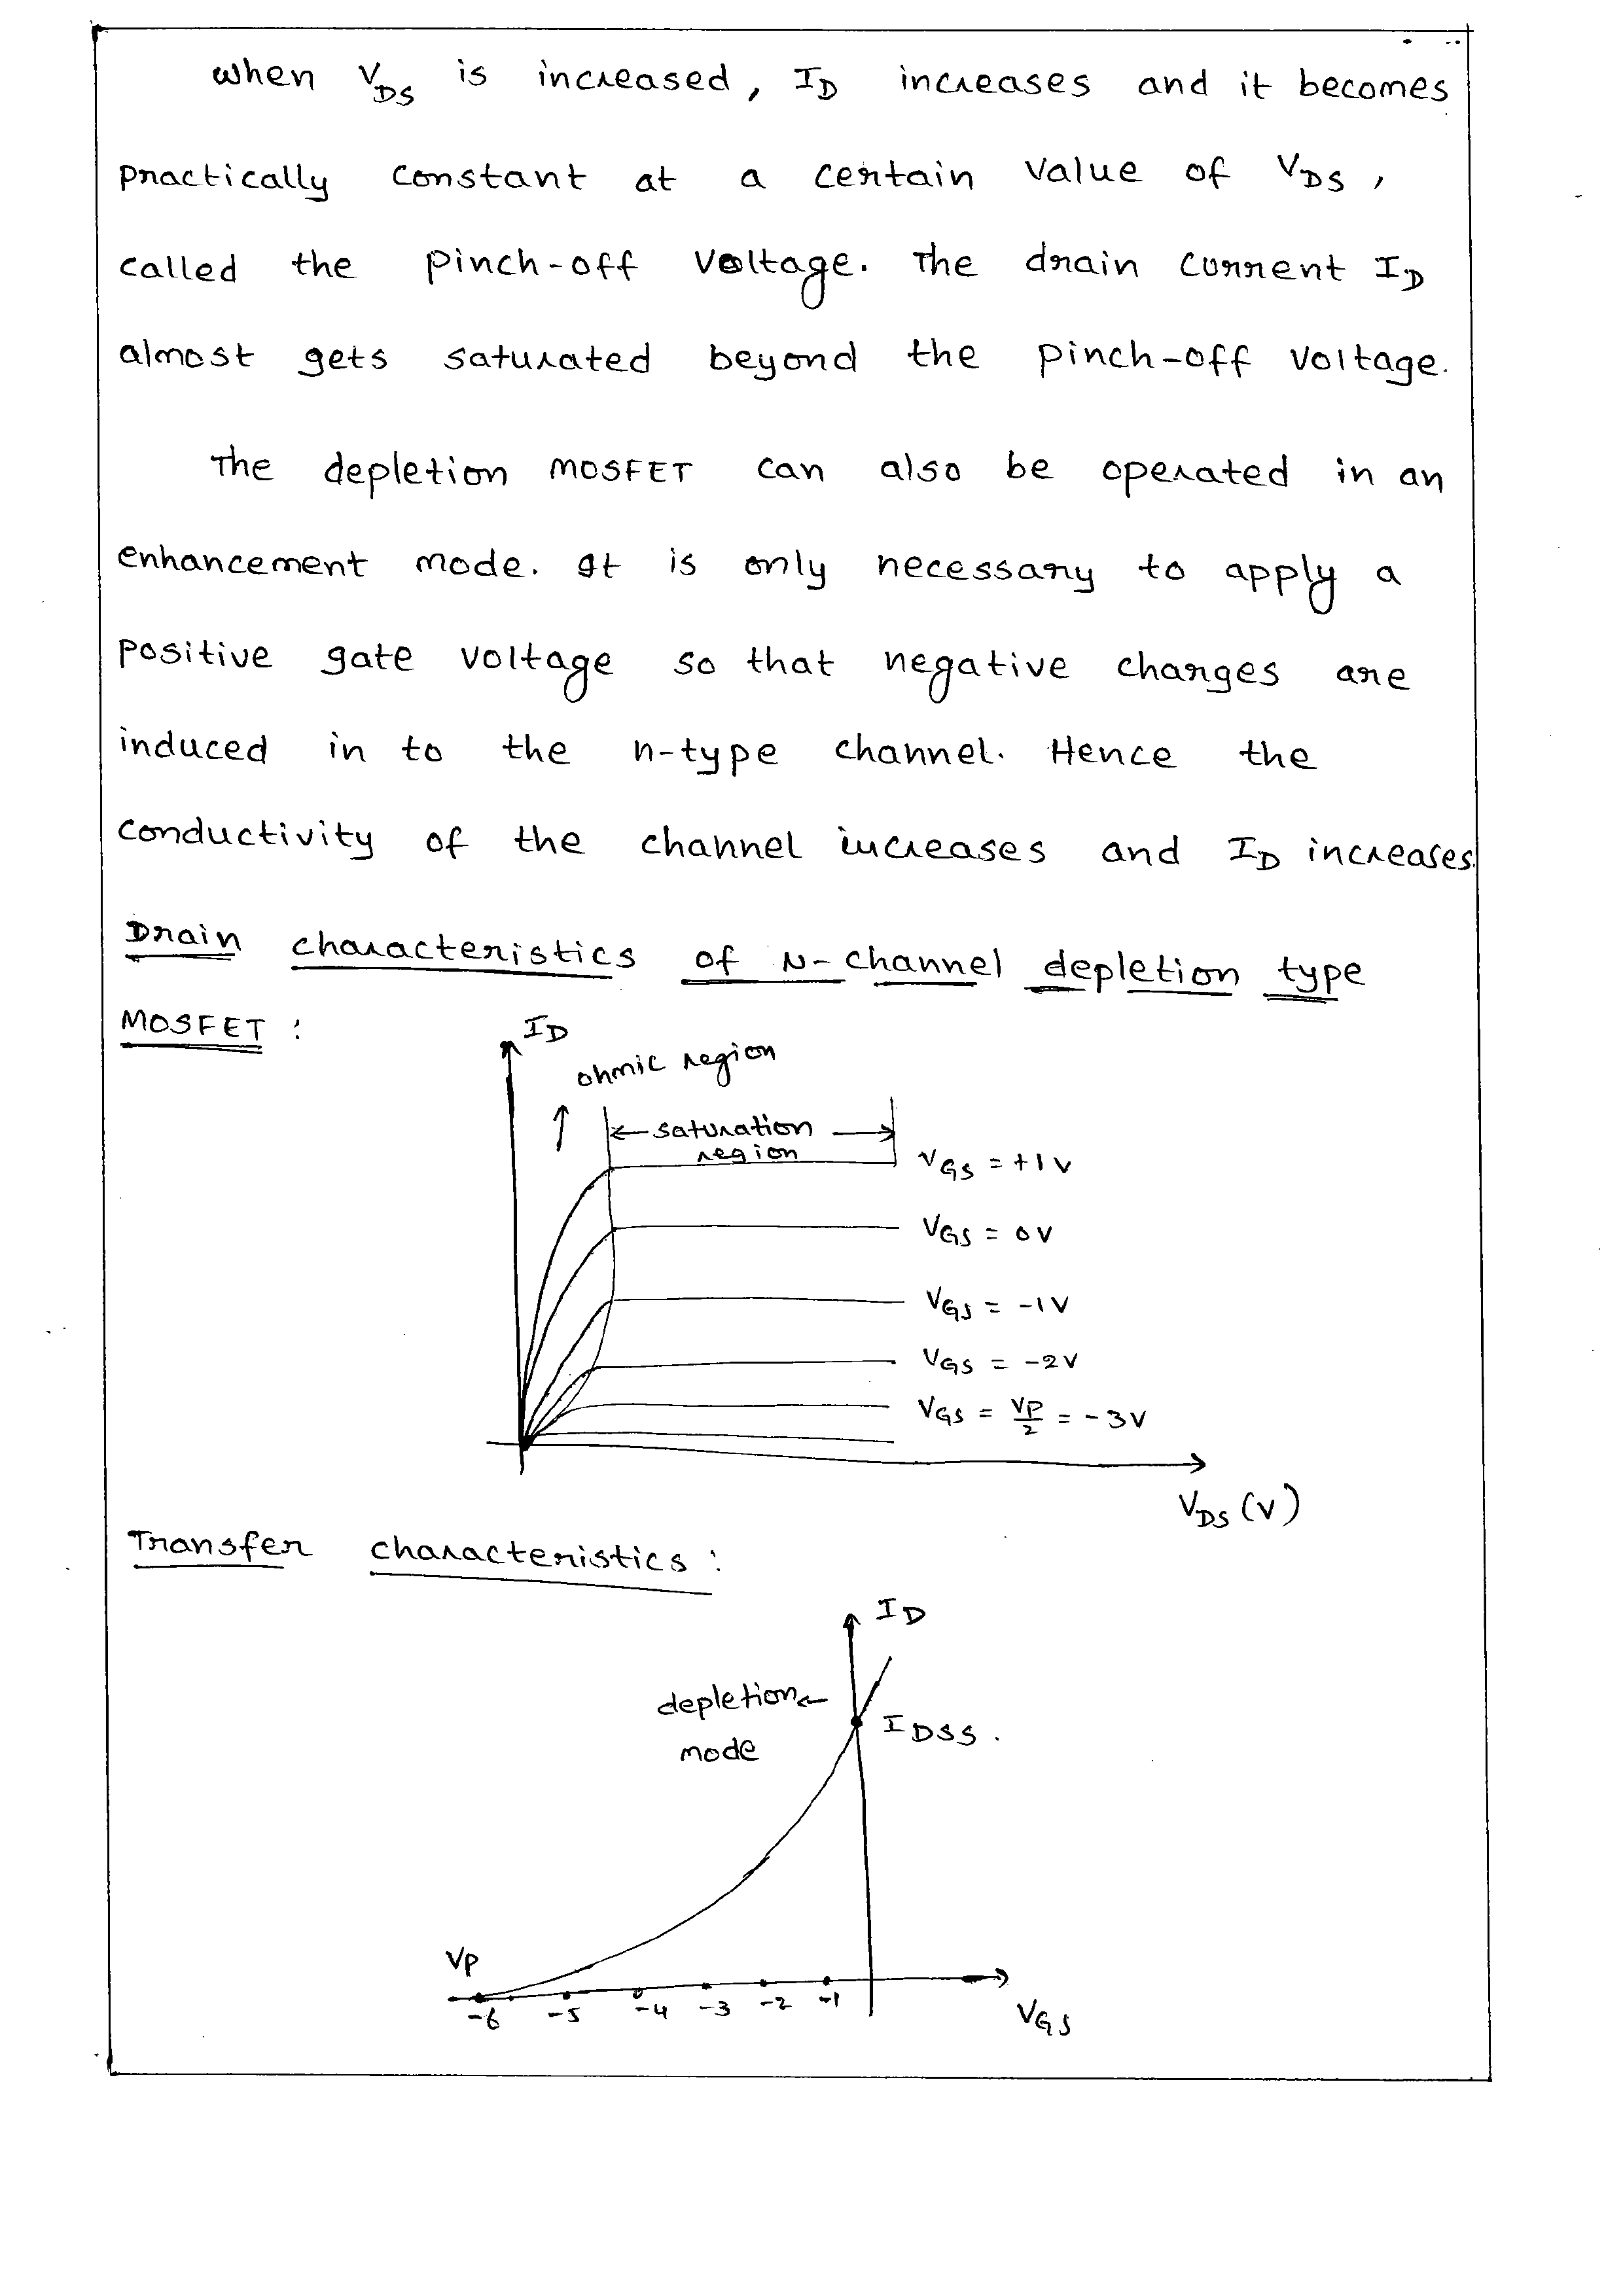 when VDS is increased, ID increases and it becomes
practically constant at a certain value of VDS,
called the pinch-off voltage. The drain current ID
almost gets saturated beyond the pinch-off voltage.
The depletion MOSFET can also be operated in an
enhancement mode. It is only necessary to apply a
positive gate voltage so that negative charges are
induced in to the n-type channel. Hence the
conductivity of the channel increases and ID increases.
Drain characteristics of N-channel depletion type
MOSFET :
ID
ohmic region
↑
← saturation →
region
VGS = +1V
VGS = 0V
VGS = -1V
VGS = -2V
VGS = VP/2 = -3V
VDS (V)
Transfer characteristics :
ID
depletion ←
mode
IDSS.
VP
-6 -5 -4 -3 -2 -1
VGS